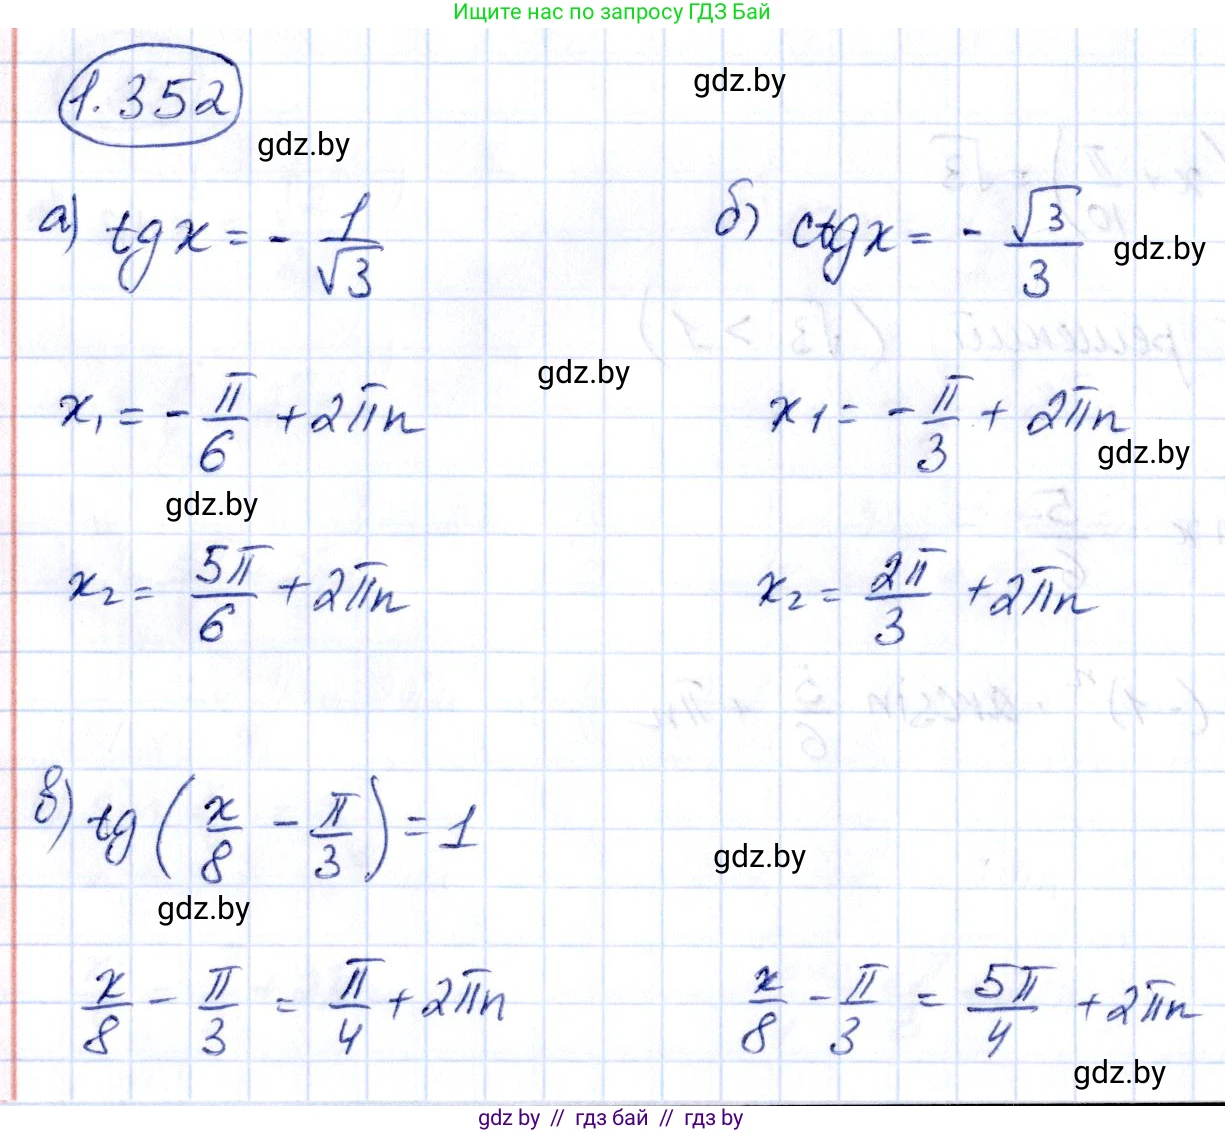 Ищите нас по запросу ГДЗ Бай
1.352
gdz.by
gdz.by
а) tg x = - 1/√3
б) ctg x = - √3/3
gdz.by
gdz.by
x₁ = - π/6 + 2πn
x₁ = - π/3 + 2πn
gdz.by
gdz.by
x₂ = 5π/6 + 2πn
x₂ = 2π/3 + 2πn
в) tg (x/8 - π/3) = 1
gdz.by
gdz.by
x/8 - π/3 = π/4 + 2πn
x/8 - π/3 = 5π/4 + 2πn
gdz.by
gdz by // гдз бай // гдз by